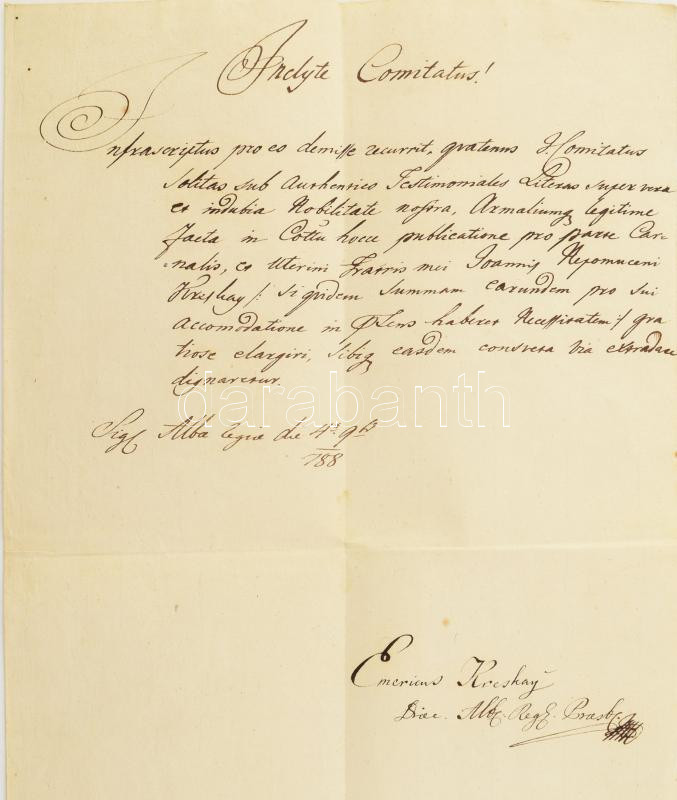 Inclyte Comitatus!
Infrascriptus pro eo demisse recurrit, qvatenus I. Comitatus
solitas sub Authentico Testimoniales Literas super vera
et indubia Nobilitate nostra, Armaliumq legitime
facta in Cottu hocce publicatione pro parte Car-
nalis, et Uterini Fratris mei Joannis Nepomuceni
Kreskay /: siqvidem summam earundem pro sui
accomodatione in Psens haberet Necessitatem :/ gra
tiose elargiri, sibiq easdem consveta via extradare
dignaretur.
Sig. Albæ Regiæ die 4a 9b
788
darabanth
Emericus Kreskay
Diæc. Alb. Reg. Presb.